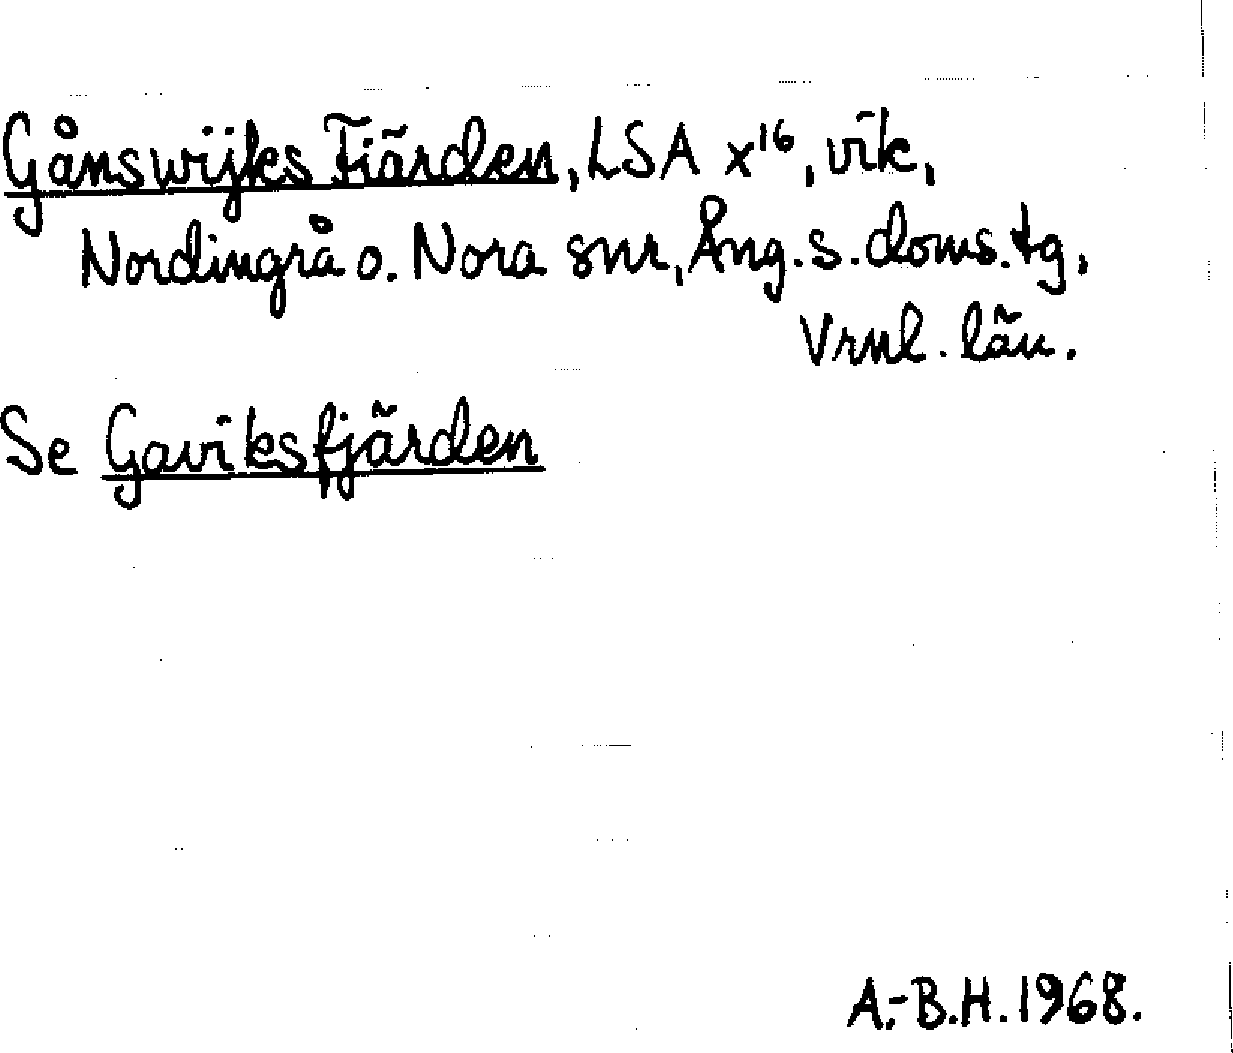 Gånswijks Fiärden, LSA x¹⁶, vik,
Nordingrå o. Nora snr, Ång. s. doms. tg,
Vrnl. län.
Se Gaviksfjärden
A.-B.H. 1968.